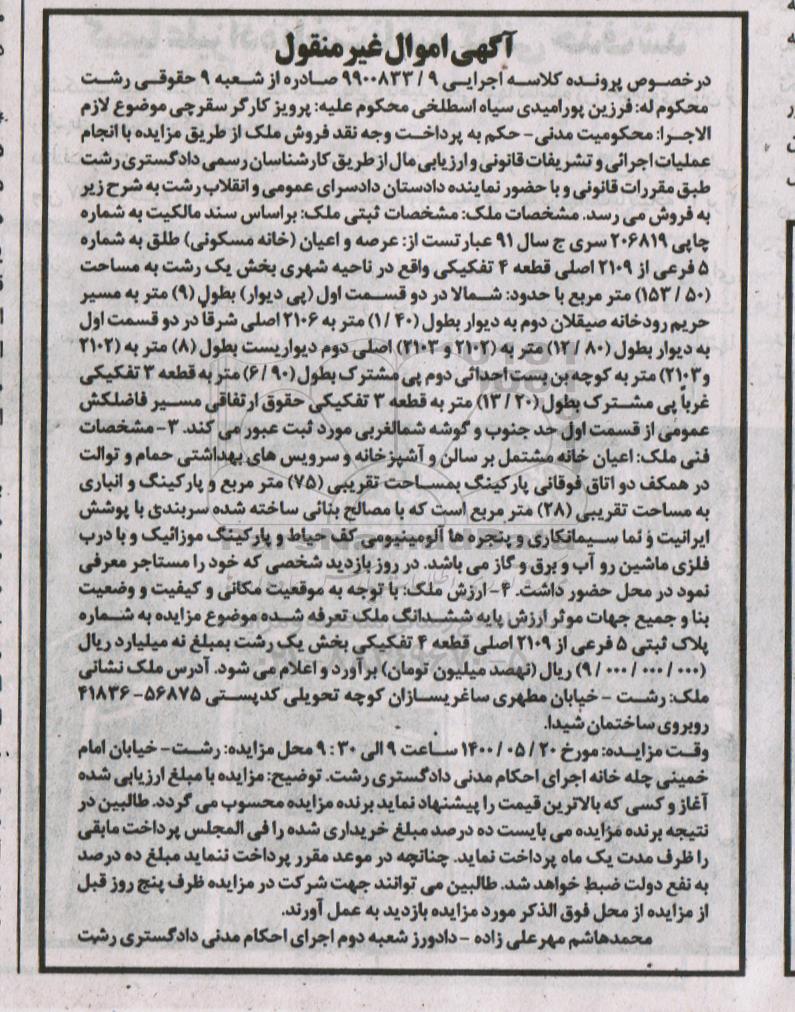 آگهی اموال غیر منقول
درخصوص پرونده کلاسه اجرایی ۹ / ۹۹۰۰۸۳۳ صادره از شعبه ۹ حقوقی رشت
محکوم له: فرزین پورامیدی سیاه اسطلخی محکوم علیه: پرویز کارگر سقرچی موضوع لازم
الاجرا: محکومیت مدنی- حکم به پرداخت وجه نقد فروش ملک از طریق مزایده با انجام
عملیات اجرائی و تشریفات قانونی و ارزیابی مال از طریق کارشناسان رسمی دادگستری رشت
طبق مقررات قانونی و با حضور نماینده دادستان دادسرای عمومی و انقلاب رشت به شرح زیر
به فروش می رسد. مشخصات ملک: مشخصات ثبتی ملک: براساس سند مالکیت به شماره
چاپی ۲۰۶۸۱۹ سری ج سال ۹۱ عبارتست از: عرصه و اعیان (خانه مسکونی) طلق به شماره
۵ فرعی از ۲۱۰۹ اصلی قطعه ۴ تفکیکی واقع در ناحیه شهری بخش یک رشت به مساحت
(۵۰ / ۱۵۳) متر مربع با حدود: شمالا در دو قسمت اول (پی دیوار) بطول (۹) متر به مسیر
حریم رودخانه صیقلان دوم به دیوار بطول (۴۰ / ۱) متر به ۲۱۰۶ اصلی شرقاً در دو قسمت اول
به دیوار بطول (۸۰ / ۱۲) متر به (۲۱۰۲ و ۲۱۰۳) اصلی دوم دیواریست بطول (۸) متر به (۲۱۰۲
و ۲۱۰۳) متر به کوچه بن بست احداثی دوم پی مشترک بطول (۹۰ / ۶) متر به قطعه ۳ تفکیکی
غرباً پی مشترک بطول (۲۰ / ۱۳) متر به قطعه ۳ تفکیکی حقوق ارتفاقی مسیر فاضلکش
عمومی از قسمت اول حد جنوب و گوشه شمالغربی مورد ثبت عبور می کند. ۳- مشخصات
فنی ملک: اعیان خانه مشتمل بر سالن و آشپزخانه و سرویس های بهداشتی حمام و توالت
در همکف دو اتاق فوقانی پارکینگ بمساحت تقریبی (۷۵) متر مربع و پارکینگ و انباری
به مساحت تقریبی (۲۸) متر مربع است که با مصالح بنائی ساخته شده سربندی با پوشش
ایرانیت و نما سیمانکاری و پنجره ها آلومینیومی کف حیاط و پارکینگ موزائیک و با درب
فلزی ماشین رو آب و برق و گاز می باشد. در روز بازدید شخصی که خود را مستاجر معرفی
نمود در محل حضور داشت. ۴- ارزش ملک: با توجه به موقعیت مکانی و کیفیت و وضعیت
بنا و جمیع جهات موثر ارزش پایه ششدانگ ملک تعرفه شده موضوع مزایده به شماره
پلاک ثبتی ۵ فرعی از ۲۱۰۹ اصلی قطعه ۴ تفکیکی بخش یک رشت بمبلغ نه میلیارد ریال
(۰۰۰ / ۰۰۰ / ۰۰۰ / ۹) ریال (نهصد میلیون تومان) برآورد و اعلام می شود. آدرس ملک نشانی
ملک: رشت - خیابان مطهری ساغریسازان کوچه تحویلی کدپستی ۵۶۸۷۵- ۴۱۸۳۶
روبروی ساختمان شیدا.
وقت مزایده: مورخ ۲۰ / ۰۵ / ۱۴۰۰ ساعت ۹ الی ۳۰ : ۹ محل مزایده: رشت- خیابان امام
خمینی چله خانه اجرای احکام مدنی دادگستری رشت. توضیح: مزایده با مبلغ ارزیابی شده
آغاز و کسی که بالاترین قیمت را پیشنهاد نماید برنده مزایده محسوب می گردد. طالبین در
نتیجه برنده مزایده می بایست ده درصد مبلغ خریداری شده را فی المجلس پرداخت مابقی
را ظرف مدت یک ماه پرداخت نماید. چنانچه در موعد مقرر پرداخت ننماید مبلغ ده درصد
به نفع دولت ضبط خواهد شد. طالبین می توانند جهت شرکت در مزایده ظرف پنج روز قبل
از مزایده از محل فوق الذکر مورد مزایده بازدید به عمل آورند.
محمدهاشم مهرعلی زاده - دادورز شعبه دوم اجرای احکام مدنی دادگستری رشت